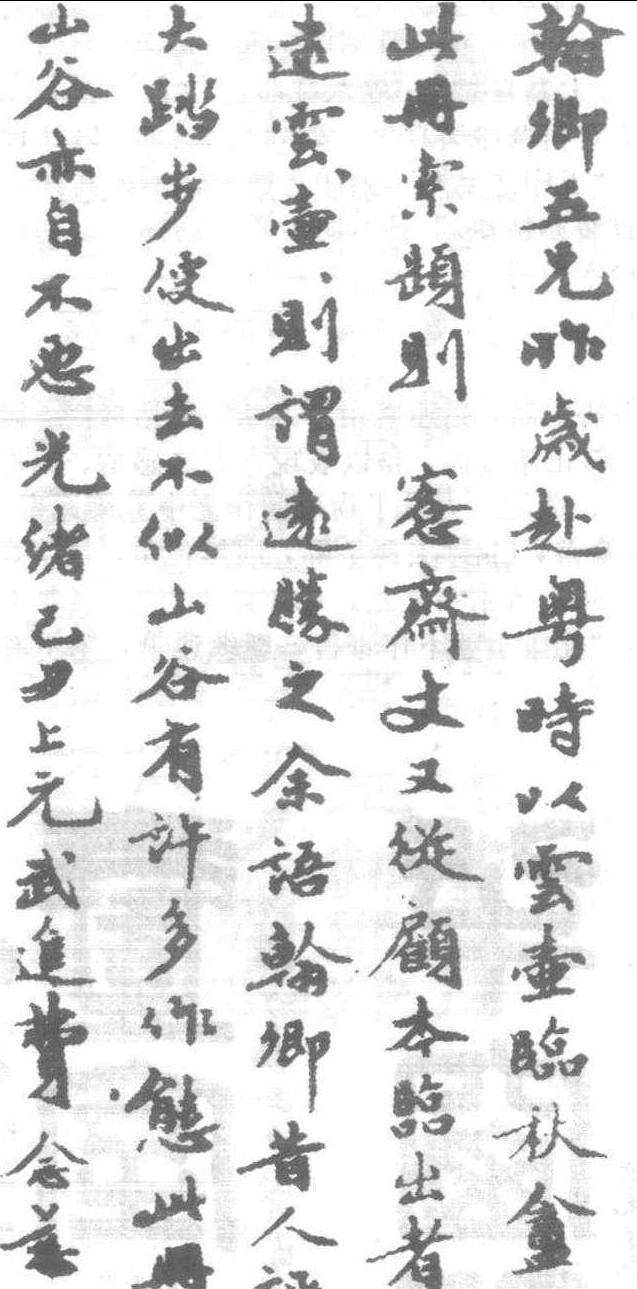 翰卿五兄昨歲赴粵時以雲壺臨秋盦
此冊索題則愙齋丈又從顧本臨出者
遠雲壺則謂遠勝之余語翰卿昔人評
大踏步便出去不似山谷有許多作態此冊
山谷亦自不惡光緒己丑上元武進費念慈